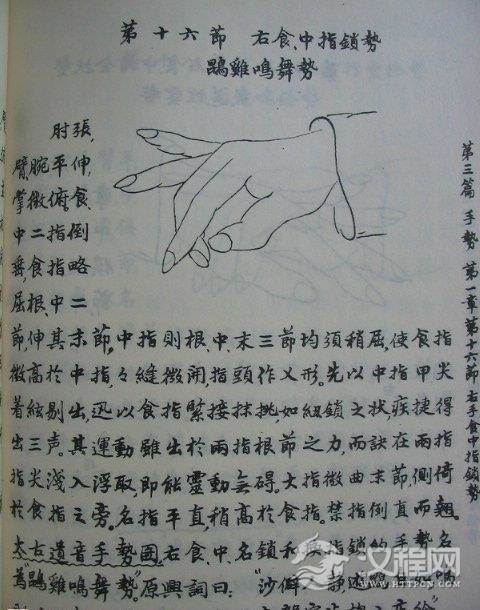 第十六節 右食、中指鎖勢
鵾雞鳴舞勢
肘張,
臂腕平伸,
掌微俯。食、
中二指倒
垂,食指略
屈根、中二
節,伸其末節,中指則根、中、末三節均須稍屈,使食指
微高於中指,指縫微開,指頭作乂形。先以中指甲尖
着絃剔出,迅以食指緊接抹挑,如紐鎖之狀,疾捷得
出三声。其運動雖出於兩指根節之力,而訣在兩指
指尖淺入浮取,即能靈動無碍。大指微曲末節,側倚
於食指之旁,名指平直,稍高於食指,禁指倒直而翹。
太古遺音手勢圖右食、中、名鎖和 指鎖的手勢名
為"鵾雞鳴舞勢"。原興詞曰:"沙
第三篇 手勢 第一章 第十六節 右手食中指鎖勢
文程网
WWW.HTTPCN.COM